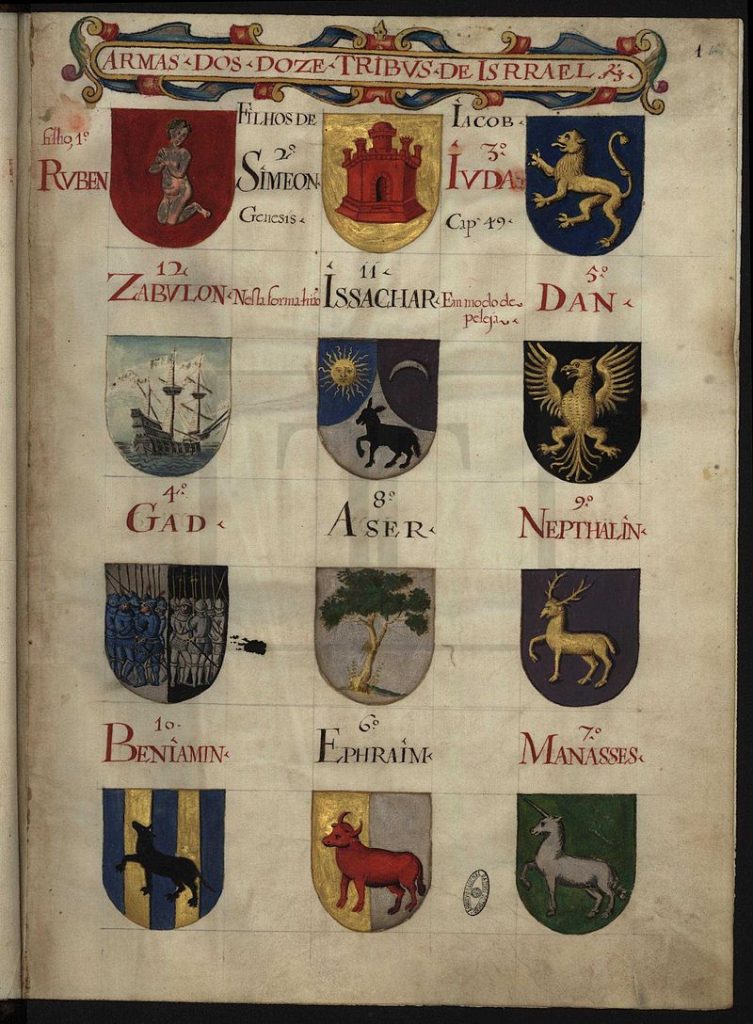 ARMAS DOS DOZE TRIBVS DE ISRRAEL
1
filho, 1º
RVBEN
FILHOS DE
2º
SIMEON
Genesis
IACOB
3º
IVDA
Cap. 49
12
ZABVLON
Nesta forma hião
11
ISSACHAR
Em modo de
peleja
5º
DAN
4º
GAD
8º
ASER
9º
NEPTHALIN
10
BENIAMIN
6º
EPHRAIM
7º
MANASSES